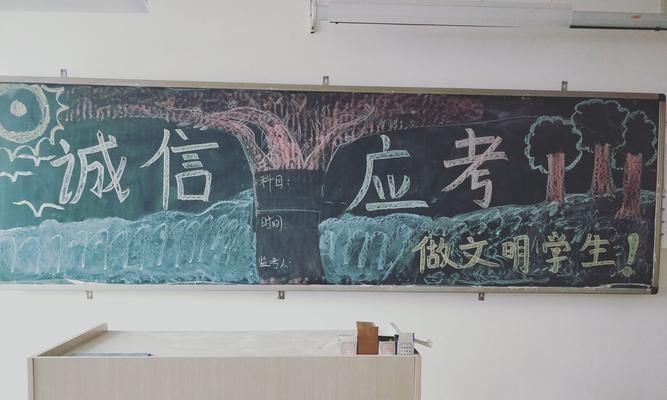 诚信应考
科目:
时间:
监考人:
做文明学生!